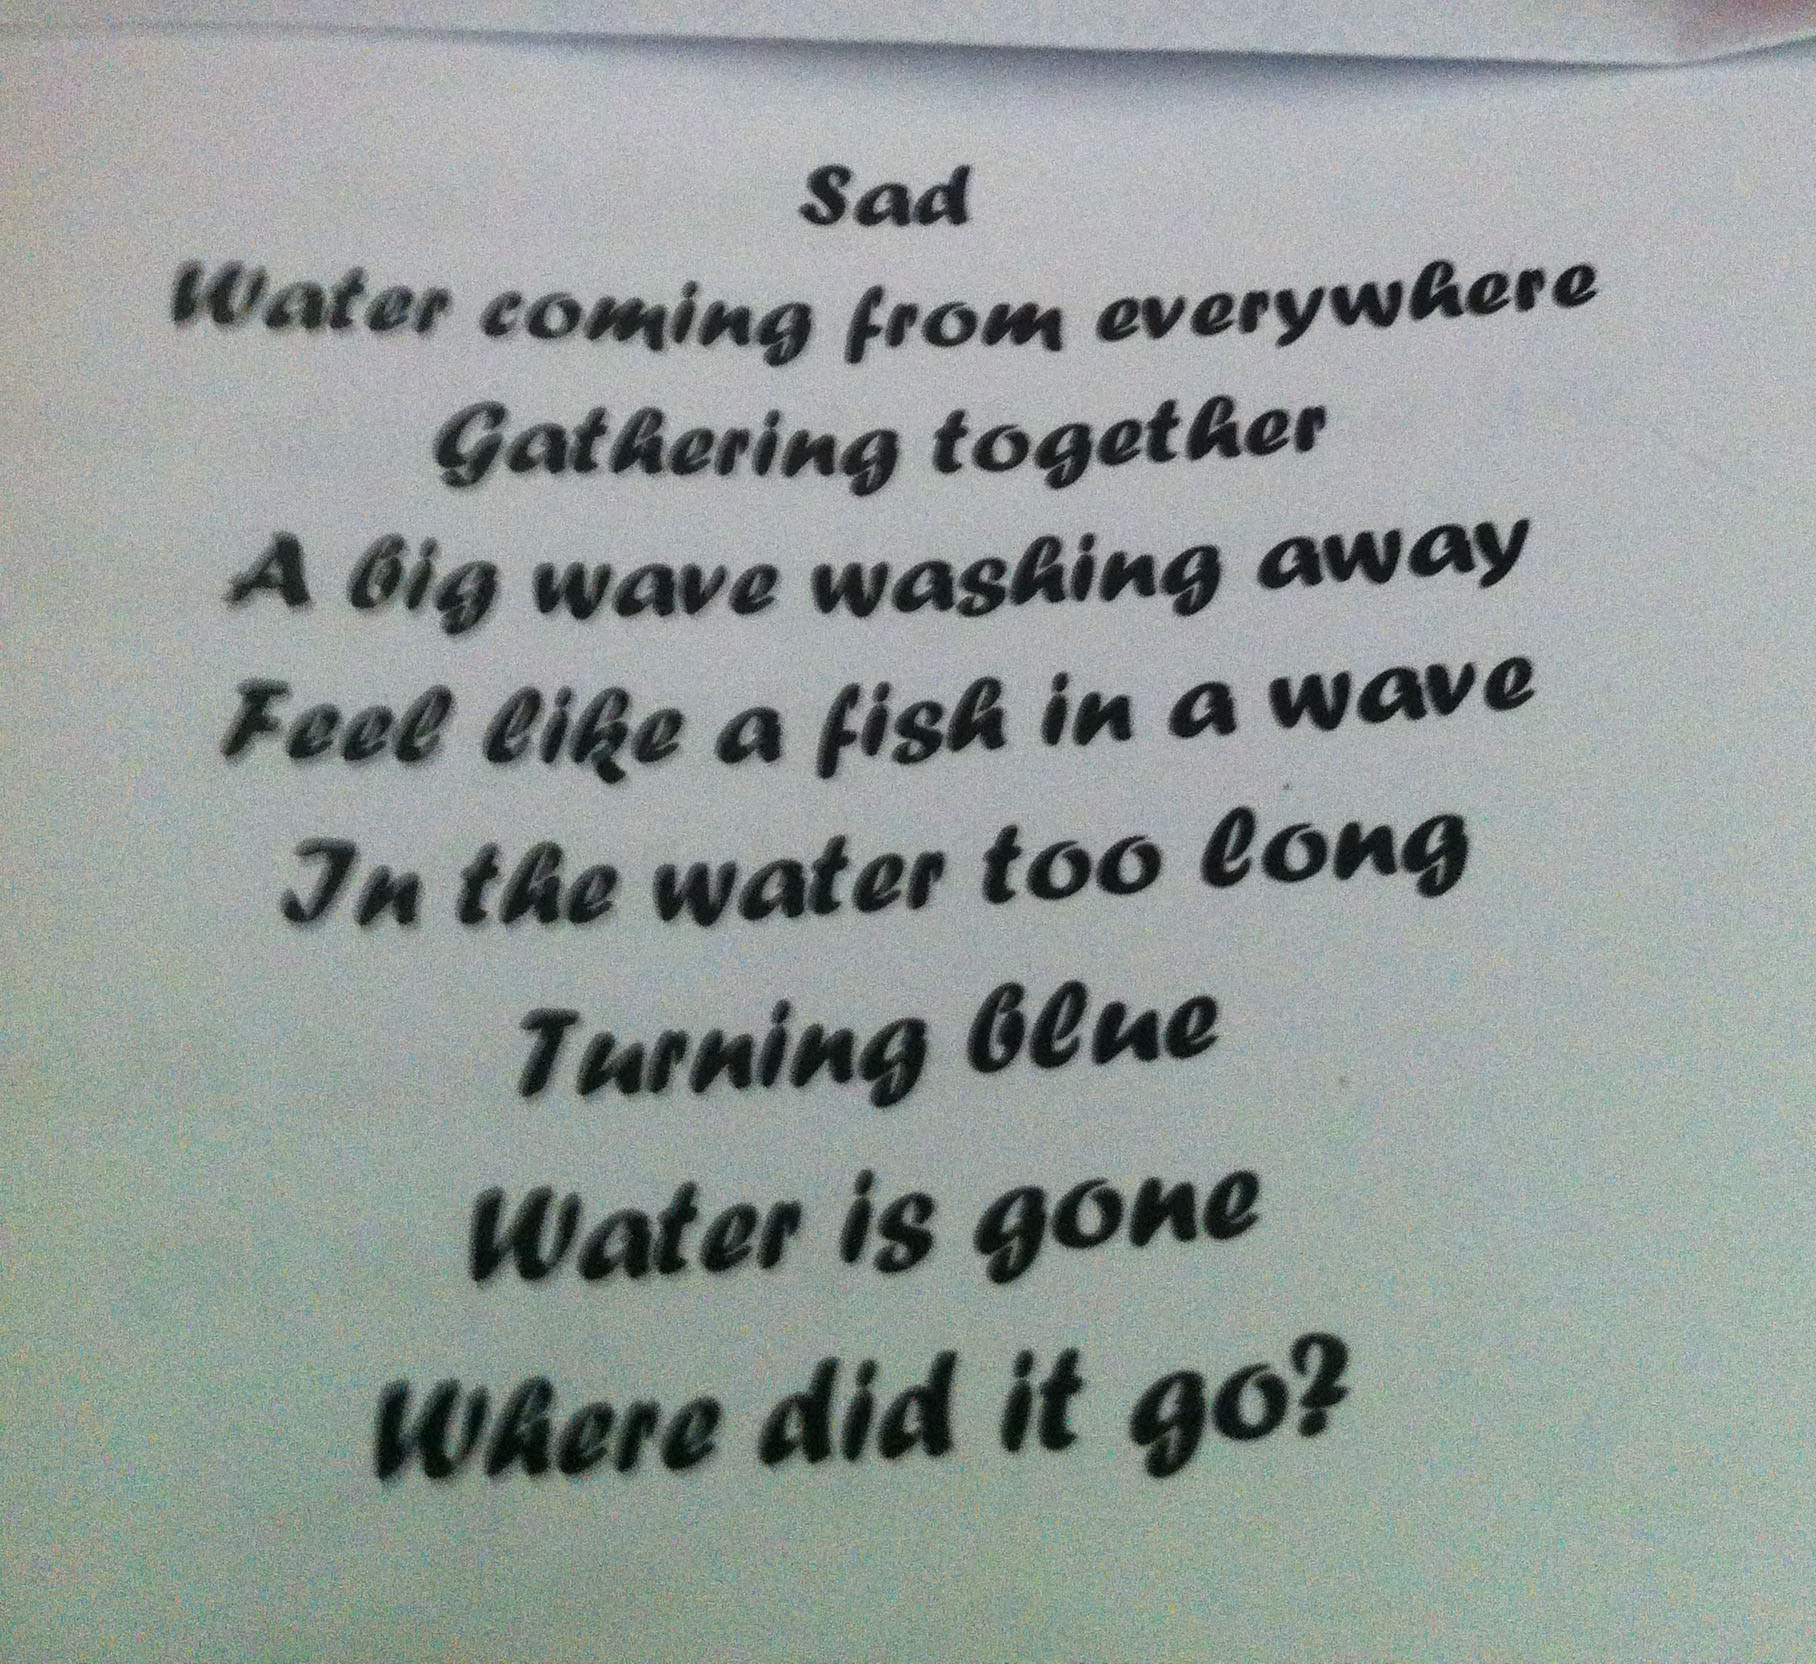 Sad
Water coming from everywhere
Gathering together
A big wave washing away
Feel like a fish in a wave
In the water too long
Turning blue
Water is gone
Where did it go?